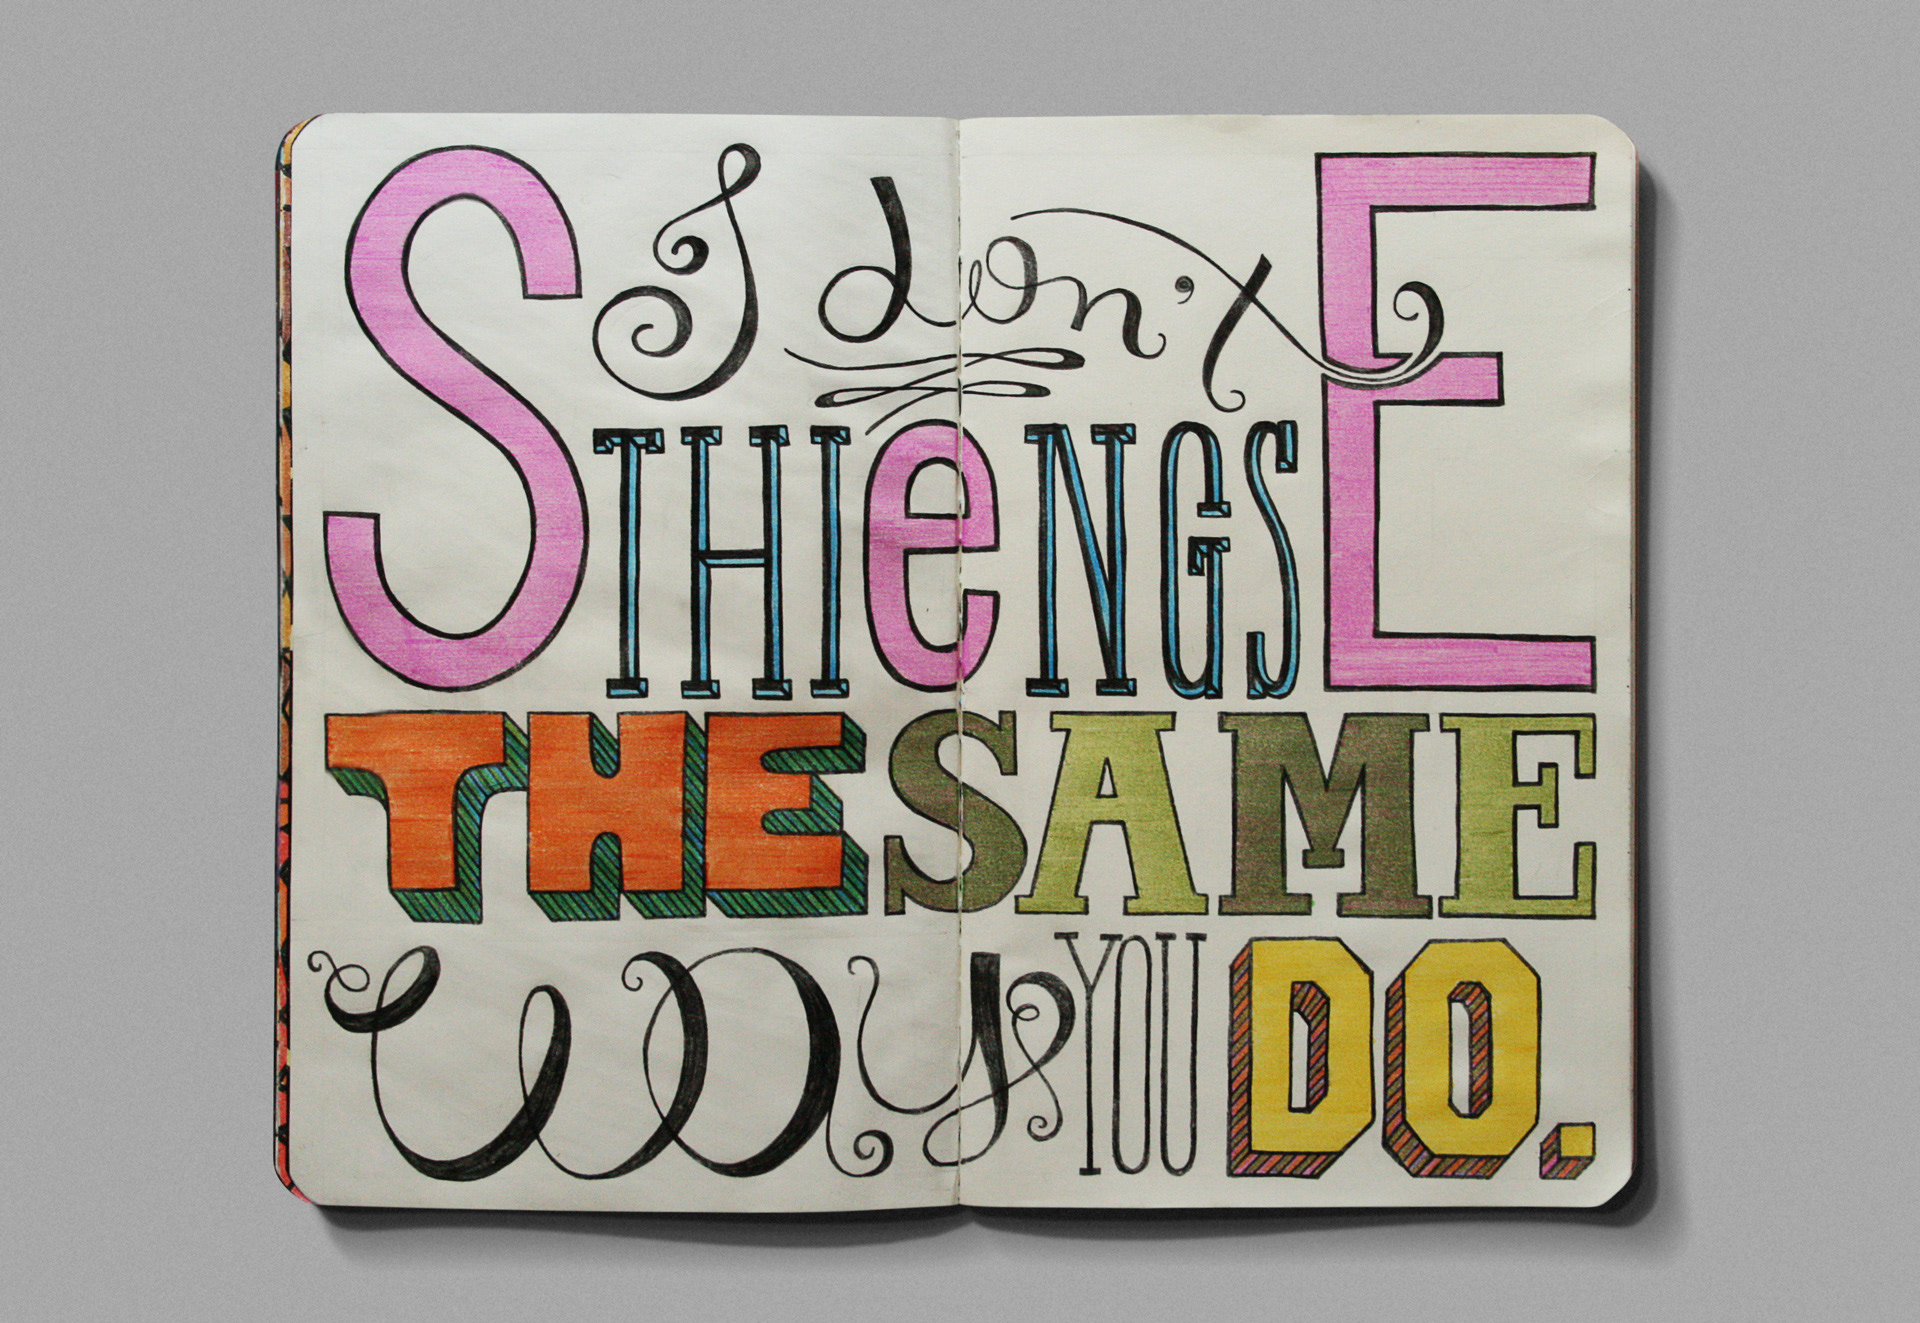 I don't
SeE THINGS
THE SAME
way YOU DO.